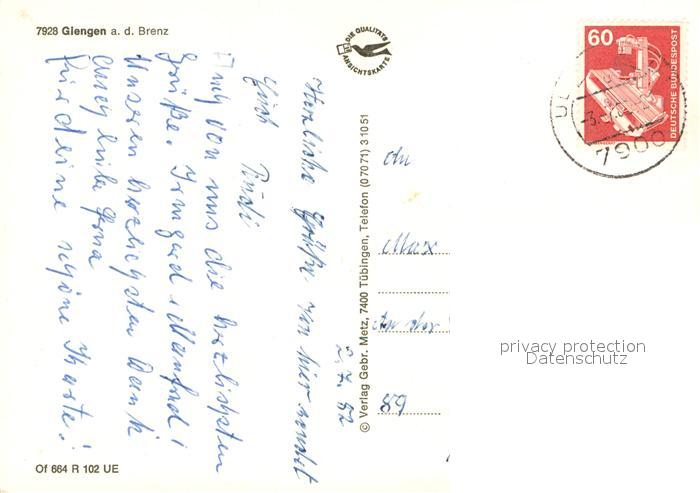 7928 Giengen a. d. Brenz
DIE QUALITÄTS
ANSICHTSKARTE
60
DEUTSCHE BUNDESPOST
UL
-3.
7900
2.7.82
Herzliche Grüße von hier sendet
Euch Rudi
Auch von uns die herzlichsten
Grüße. Irmgard + Manfred!
Unseren herzlichsten Dank
liebe
für deine schöne Karte!
© Verlag Gebr. Metz, 7400 Tübingen, Telefon (0 70 71) 3 10 51
An
Max
An der
89
privacy protection
Datenschutz
Of 664 R 102 UE